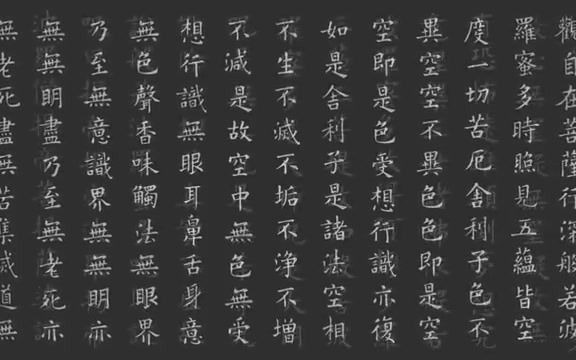 觀自在菩薩行深般若波
羅蜜多時照見五蘊皆空
度一切苦厄舍利子色不
異空空不異色色即是空
空即是色受想行識亦復
如是舍利子是諸法空相
不生不滅不垢不淨不增
不減是故空中無色無受
想行識無眼耳鼻舌身意
無色聲香味觸法無眼界
乃至無意識界無無明亦
無無明盡乃至無老死亦
無老死盡無苦集滅道無